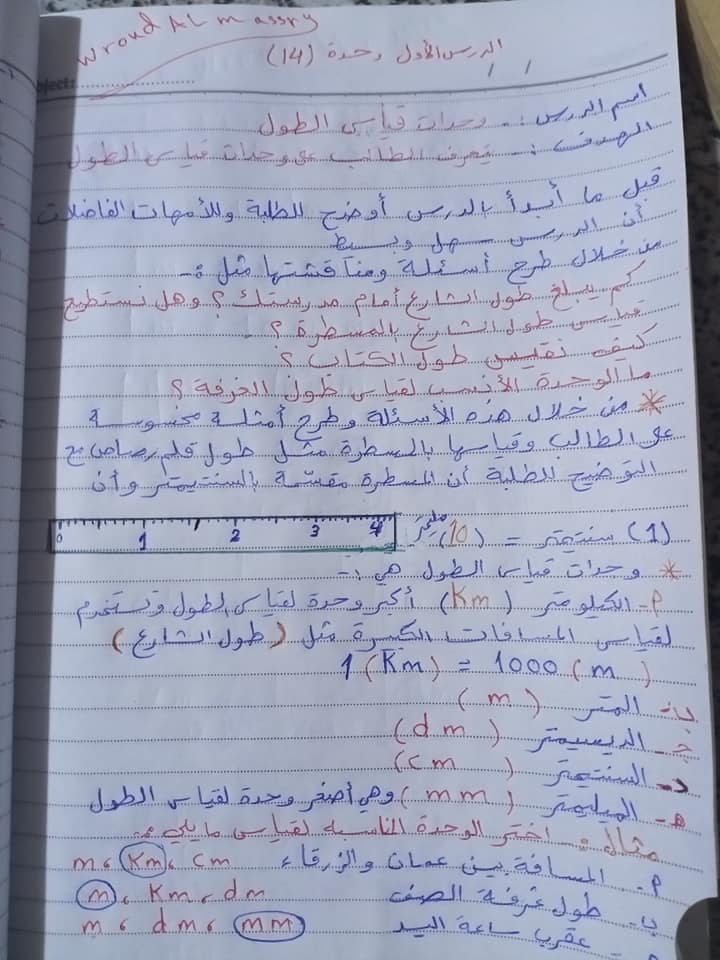 Wroud ALmassry
الدرس الأول وحدة (14)
bject:
/ /
اسم الدرس :- وحدات قياس الطول
الهدف :- يتعرف الطالب على وحدات قياس الطول
قبل ما أبدأ بالدرس أوضح للطلبة وللأمهات الفاضلات
أن الدرس سهل وبسيط
من خلال طرح أسئلة ومناقشتها مثل :-
كم يبلغ طول الشارع أمام مدرستك ؟ وهل نستطيع
قياس طول الشارع بالمسطرة ؟
كيف نقيس طول الكتاب ؟
ما الوحدة الأنسب لقياس طول الغرفة ؟
* من خلال هذه الأسئلة وطرح أمثلة محسوسة
على الطالب وقياسها بالمسطرة مثل طول قلم رصاص مع
التوضيح للطلبة أن المسطرة مقسّمة بالسنتيمتر وأن
(1) سنتيمتر = (10) مليمتر
0 1 2 3 4
* وحدات قياس الطول هي :-
أ- الكيلومتر (Km) أكبر وحدة لقياس الطول وتستخدم
لقياس المسافات الكبيرة مثل (طول الشارع)
1 (Km) = 1000 (m)
ب- المتر (m)
ج- الديسيمتر (dm)
د- السنتيمتر (cm)
هـ- الميليمتر (mm) وهي أصغر وحدة لقياس الطول
مثال :- اختر الوحدة المناسبه لقياس ما يلي :-
أ- المسافة بين عمان والزرقاء m، Km، cm
ب- طول غرفة الصف m، Km، dm
عقرب ساعة اليد m، dm، mm